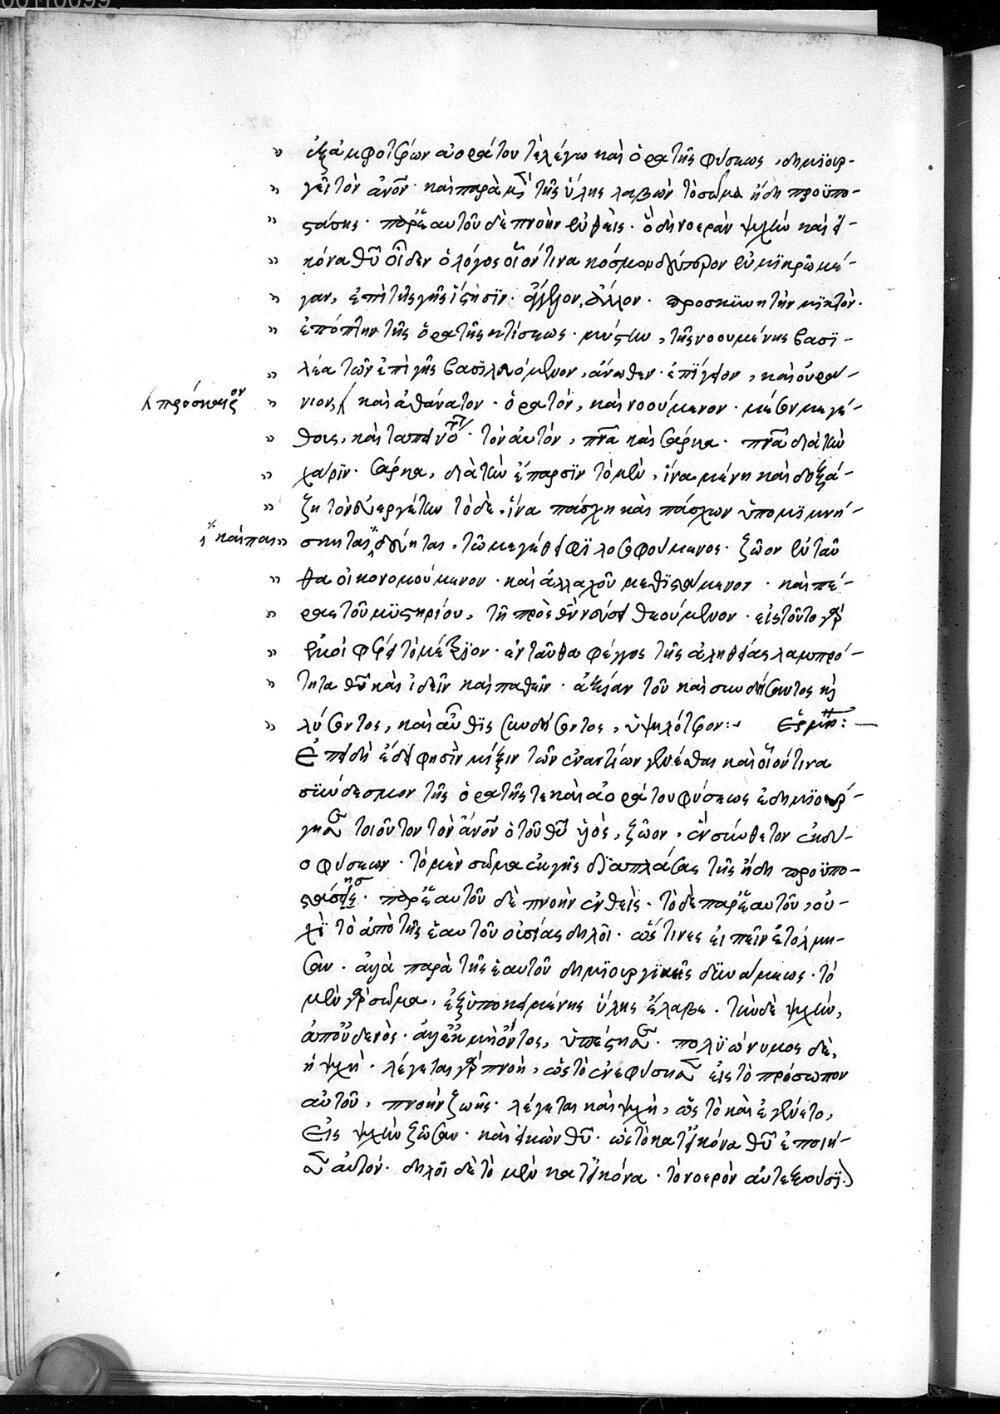 ἐξ ἀμφοτέρων ἀοράτου τὲ λέγω καὶ ὁρατῆς φύσεως, δημϊουρ-
γεῖ τὸν ἄνον· καὶ παρὰ μὲν τῆς ὕλης λαβὼν τὸ σῶμα ἤδη προϋπο-
στάσης· παρ' ἑαυτοῦ δὲ πνοὴν ἐνθεὶς· ὃ δὴ νοερὰν ψυχὴν καὶ εἰ-
κόνα θῦ οἶδεν ὁ λόγος οἷόν τινα κόσμον δεύτερον ἐν μϊκρῶ μέ-
γαν, ἐπὶ τῆς γῆς ἵστησϊν· ἄγγελον ἄλλον· προσκϋνητὴν μϊκτὸν·
ἐπόπτην τῆς ὁρατῆς κτίσεως· μύστην, τῆς νοουμένης βασϊ-
λέα τῶν ἐπὶ γῆς βασϊλευόμενον, ἄνωθεν· ἐπίγειον, καὶ οὐρά-
πρόσκαιρον
νιον, καὶ ἀθάνατον· ὁρατὸν, καὶ νοούμενον· μέσον μεγέ-
θους, καὶ ταπεινότητος· τὸν αὐτὸν, πνα καὶ σάρκα· πνα διὰ τὴν
χάρϊν· σάρκα, διὰ τὴν ἔπαρσϊν τὸ μὲν, ἵνα μένη καὶ δοξά-
ζη τὸν εὐεργέτην τὸ δὲ, ἵνα πάσχη καὶ πάσχων ὑπομϊμνή-
καὶ παι
σκηται, δεύηται, τῶ μεγέθει φϊλοτιμούμενος· ζῶον ἐνταῦ
θα οἰκονομούμενον· καὶ ἀλλαχοῦ μεθϊστάμενον· καὶ πέ-
ρας τοῦ μϋστηρίου, τῆ πρὸς θν νεύσει θεούμενον· εἰς τοῦτο γὰρ
ἐμοὶ φέρει τὸ μέτρϊον· ἐνταῦθα φέγγος τῆς ἀληθείας λαμπρό-
τητα θῦ καὶ ἰδεῖν καὶ παθεῖν· ἀξίαν τοῦ καὶ συνδήσαντος καὶ
λύσοντος, καὶ αὖθϊς συνδήσοντος, ὑψηλότερον: Ἑρμη:
Ἐπειδὴ ἔδει φησὶν μίξιν τῶν ἐναντίων γενέσθαι καὶ οἷόν τινα
σϋνδεσμον τῆς ὁρατῆς τε καὶ ἀοράτου φύσεως ἐδημϊούρ-
γησε τοιοῦτον τὸν ἄνον ὁ τοῦ θῦ υἱὸς, ζῶον, ἓν σύνθετον ἐκ δύ-
ο φύσεων· τὸ μὲν σῶμα ἐκ γῆς δϊαπλάσας τῆς ἤδη προϋπο-
στάσης· παρ' ἑαυτοῦ δὲ πνοὴν ἐνθεὶς· τὸ δὲ παρ' ἑαυτοῦ, οὐ-
χϊ τὸ ἀπὸ τῆς ἑαυτοῦ οὐσίας δηλοῖ· ὥς τινες εἰπεῖν ἐτόλμη-
σαν· ἀλλὰ παρὰ τῆς ἑαυτοῦ δημϊουργϊκῆς δϋνάμεως· τὸ
μὲν γὰρ σῶμα, ἐξ ὑποκειμένης ὕλης ἔλαβε· τὴν δὲ ψυχὴν,
ἀπ' οὐδενὸς· ἀλλ' ἐκ μὴ ὄντος, ὑπέστησε· πολϋώνυμος δὲ,
ἡ ψυχὴ· λέγεται γὰρ πνοὴ, ὡς τὸ ἐνεφύσησε εἰς τὸ πρόσωπον
αὐτοῦ, πνοὴν ζωῆς· λέγεται καὶ ψυχὴ, ὡς τὸ καὶ ἐγένετο,
Εἰς ψυχὴν ζῶσαν· καὶ εἰκὼν θῦ· ὡς τὸ κατ' εἰκόνα θῦ ἐποίη-
σε αὐτόν· δηλοῖ δὲ τὸ μὲν κατ' εἰκόνα· τὸ νοερὸν αὐτεξούσϊον